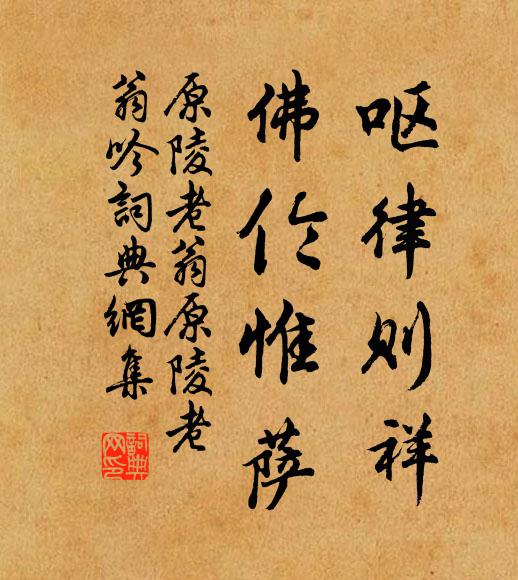 呕律则祥
佛伱惟萨
原陵老翁原陵老
翁吟詞典網集
詞典網印